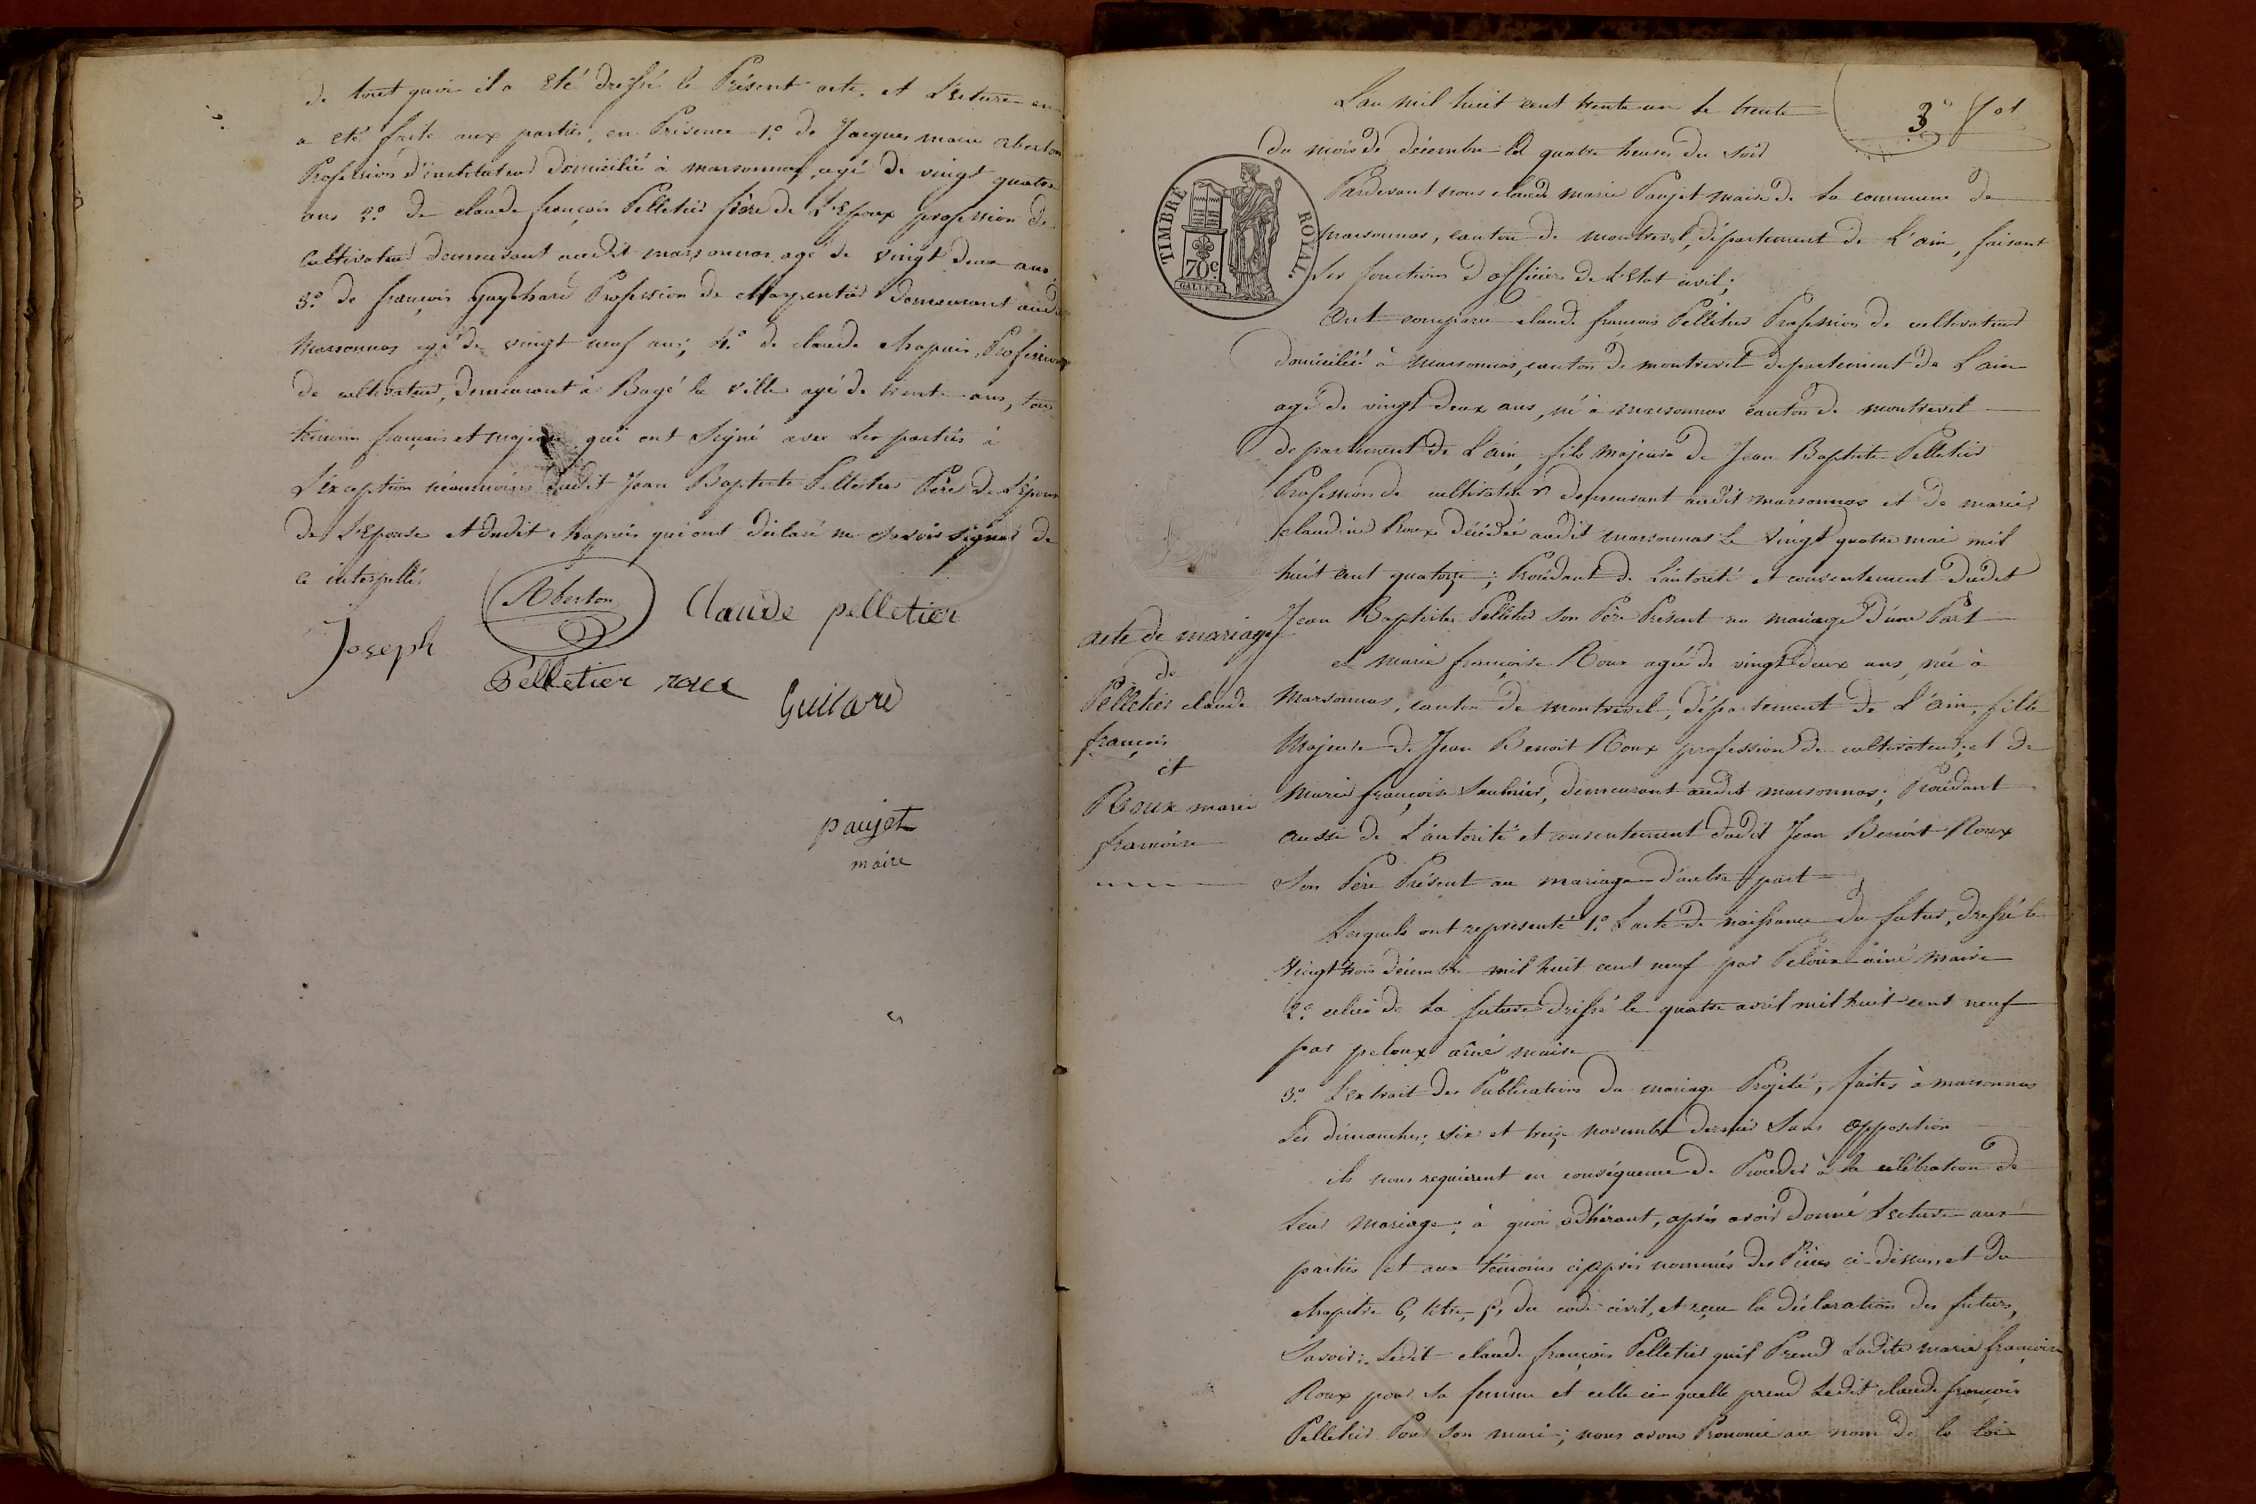 de tout quoi il a été dressé le Présent acte et Lecture en
a eté faite aux parties, en Présence 1.º de Jacques marie Aberton
Profession d'instituteur domicilié à marsonnas, agé de vingt quatre
ans 2.º de claude françois Pelletier frère de L'Epoux profession de
cultivateur demeurant audit marsonnas agé de vingt deux ans
3.º de françois Guychard Profession de charpentier demeurant audit
Marsonnas agé de vingt neuf ans; 4.º de claude chapuis, Profession
de cultivateur, demeurant à Bagé la ville agé de trente ans, tous
témoins français et majeurs qui ont signé avec les parties à
L'exception néanmoins dudit Jean Baptiste Pelletier Père de L'Epoux
de L'Epouse et dudit chapuis qui ont déclaré ne savoir signer de
ce interpellés
Aberton
Claude pelletier
Joseph
Pelletier roux
Guilard
paujet
maire
3.º fol
L'an mil huit cent trente un le trente
du mois de décembre à quatre heures du soir
TIMBRE ROYAL.
70c.
Pardevant nous claude marie Paujet maire de la commune de
marsonnas, canton de montrevel, département de L'ain, faisant
les fonctions d'officier de L'Etat civil;
Ont comparu claude francois Pelletier Profession de cultivateur
domicilié à marsonnas, canton de montrevel departement de L'ain
agé de vingt deux ans, né à marsonnas canton de montrevel
departement de L'ain, fils majeur de Jean Baptiste Pelletier
Profession de cultivateur demeurant audit marsonnas et de marie
claudine Roux décédée audit marsonnas Le vingt quatre mai mil
huit cent quatorze; Procédant de L'autorité et consentement dudit
Jean Baptiste Pelletier son Père Présent au mariage D'une Part
acte de mariage
de
Pelletier claude
françois
et
Roux marie
francoise
et marie françoise Roux agée de vingt deux ans, née à
Marsonnas, canton de montrevel, département de L'ain, fille
Majeure de Jean Benoit Roux profession de cultivateur, et de
Marie françoise Saulnier, demeurant audit marsonnas; Procédant
aussi de L'autorité et consentement dudit Jean Benoit Roux
son Père Présent au mariage d'autre part
Lesquels ont représenté 1.º L'acte de naissance du futur, dressé le
vingt trois décembre mil huit cent neuf par Peloux ainé Maire
2.º celui de la future dressé le quatre avril mil huit cent neuf
par peloux aîné maire
3.º L'extrait des Publications du mariage Projeté, faites à marsonnas
Les dimanches; six et treize novembre dernier Sans opposition
ils nous requierent en conséquence de Proceder à la célébration de
leur mariage; à quoi adhérant, après avoir donné Lecture aux
parties et aux témoins ci après nommés des Pièces ci-dessus, et du
chapitre 6, titre, 5, du code civil, et reçu la déclaration des futurs,
savoir: Ledit claude françois Pelletier qu'il Prend Ladite marie françoise
Roux pour sa femme et celle ci quelle prend Ledit claude françois
Pelletier Pour son mari; nous avons Prononcé au nom de la loi